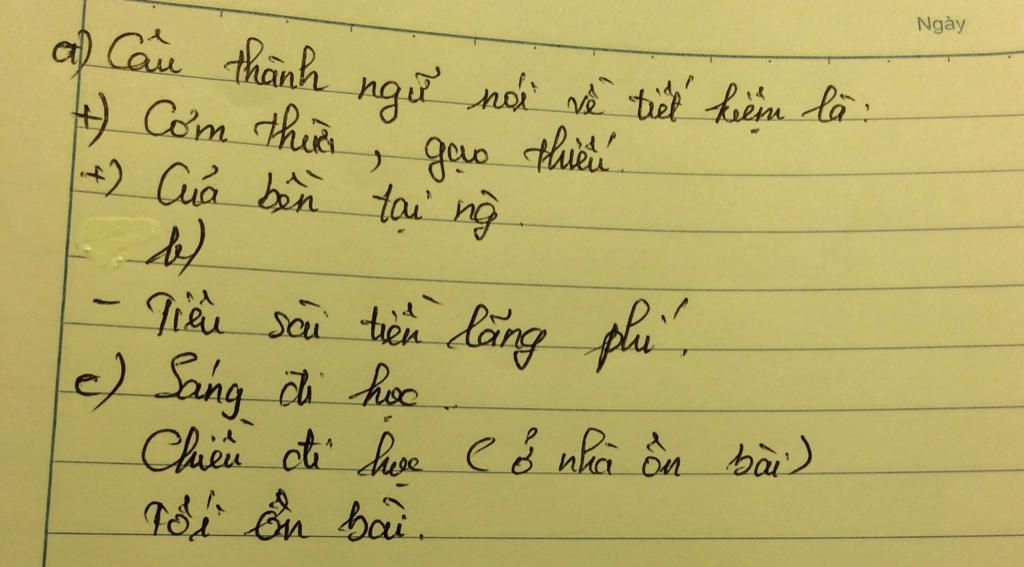 Ngày
a) Câu thành ngữ nói về tiết kiệm là:
+) Cơm thừa, gạo thiếu.
+) Của bền tại ng.
b)
- Tiêu sài tiền lãng phí.
c) Sáng đi học.
Chiều đi học (ở nhà ôn bài)
Tối ôn bài.